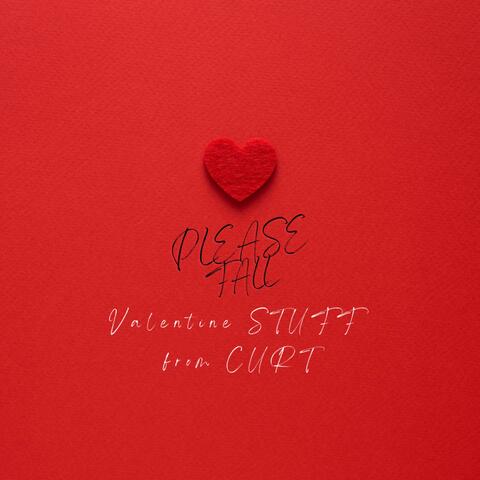 PLEASE
FALL
Valentine STUFF
from CURT